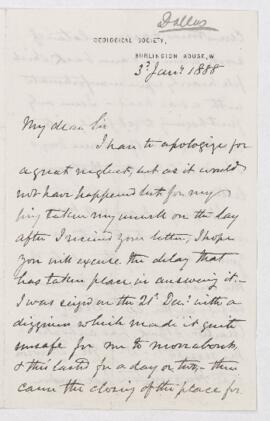 Dallas
GEOLOGICAL SOCIETY,
BURLINGTON HOUSE, W
3rd Jany. 1888
My dear Sir
I have to apologize for
a great neglect, but as it would
not have happened but for my
being taken very much on the day
after I received your letter, I hope
you will excuse the delay that
has taken place in answering it. –
I was seized on the 21st Decr. with a
dizziness which made it quite
unsafe for me to move about,
& this lasted for a day or two, – then
came the closing of the place for